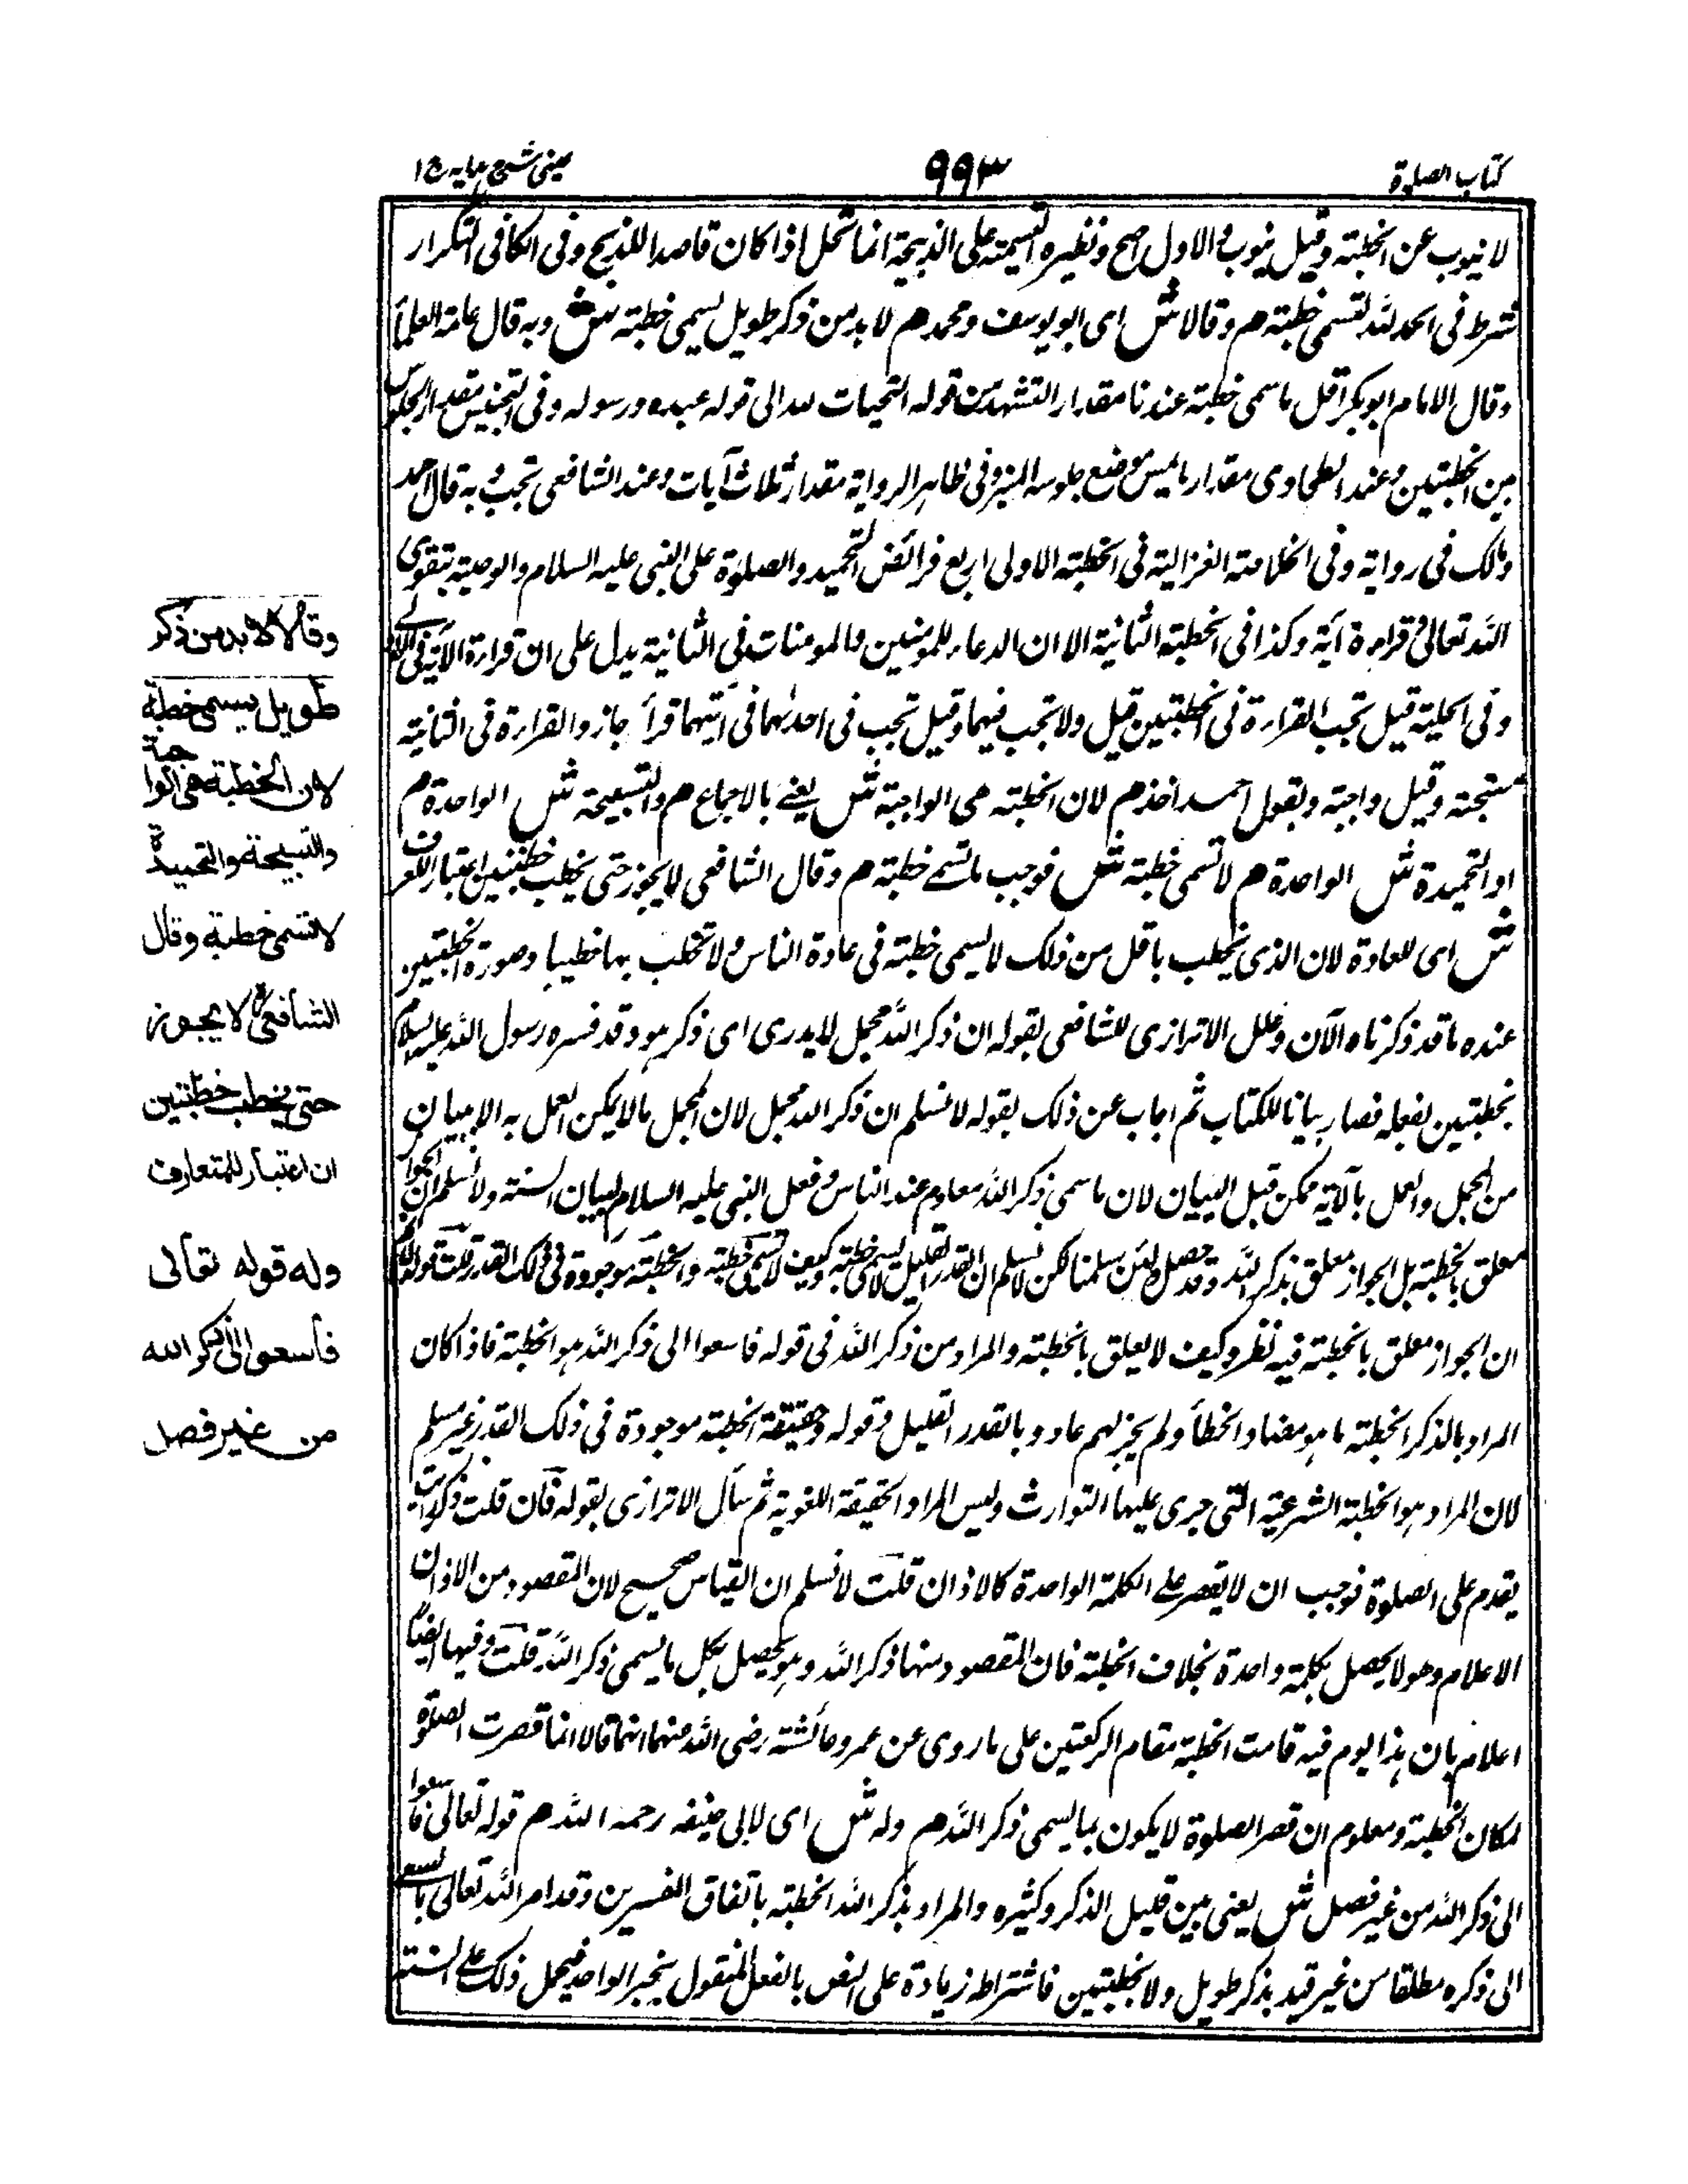 كتاب الصلوة
٩٩٣
عينى شرح هدايه ج١
لا ينوب عن الخطبة وقيل ينوب والاول اصح ونظيره التسمية على الذبيحة انما تحل اذا كان قاصدا للذبح وفى الكافى التكرار
شرط فى الحمد لله لتسمى خطبة م وقالا ش اى ابو يوسف ومحمد م لا بد من ذكر طويل يسمى خطبة ش وبه قال عامة العلمأ
وقال الامام ابو بكر اقل ما سمى خطبة عندنا مقدار التشهد من قوله التحيات لله الى قوله عبده ورسوله وفى التجنيس مقدار الجلوس
بين الخطبتين وعند الطحاوى مقدار ما يمس موضع جلوسه المنبر وفى ظاهر الرواية مقدار ثلاث آيات وعند الشافعى تجب وبه قال احمد
ومالك فى رواية وفى الخلاصة الغزالية فى الخطبة الاولى اربع فرائض التحميد والصلوة على النبى عليه السلام والوصية بتقوى
الله تعالى وقراءة آية وكذا فى الخطبة الثانية الا ان الدعاء للمؤمنين والمومنات فى الثانية يدل على ان قراءة الآية فى الاولى
وفى الحلية قيل تجب القراءة فى الخطبتين قيل ولا تجب فيهما وقيل تجب فى احدهما فى ايتهما قرأ جاز والقراءة فى الثانية
مستحبة وقيل واجبة وبقول احمد اخذ م لان الخطبة هى الواجبة ش يعنى بالاجماع م والتسبيحة ش الواحدة م
او التحميدة ش الواحدة م لا تسمى خطبة ش فوجب ما تسمى خطبة م وقال الشافعى لا يجوز حتى يخطب خطبتين اعتبارا للعرف
ش اى للعادة لان الذى يخطب باقل من ذلك لا يسمى خطبة فى عادة الناس ولا تخطب بها خطيبا وصورة الخطبتين
عنده ما قد ذكرناه الآن وعلل الاترازى للشافعى بقوله ان ذكر الله مجمل لا يدرى اى ذكر هو وقد فسره رسول الله عليه السلام
بخطبتين بفعله فصار بيانا للكتاب ثم اجاب عن ذلك بقوله لا نسلم ان ذكر الله مجمل لان المجمل ما لا يمكن العمل به الا ببيان
من المجمل والعمل بالآية ممكن قبل البيان لان ما سمى ذكر الله معلوم عند الناس وفعل النبى عليه السلام لبيان السنة ولا نسلم ان الجواز
معلق بالخطبة بل الجواز معلق بذكر الله وقد حصل ولئن سلمنا لكن لا نسلم ان القدر القليل لا يسمى خطبة وكيف لا تسمى خطبة والخطبة موجودة فى ذلك القدر قلت قوله لا نسلم
ان الجواز معلق بالخطبة فيه نظر وكيف لا يعلق بالخطبة والمراد من ذكر الله فى قوله فاسعوا الى ذكر الله هو الخطبة فاذا كان
المراد بالذكر الخطبة ما هو مضاد الخطأ ولم يجز لهم عاد وبالقدر القليل وقوله وحقيقة الخطبة موجودة فى ذلك القدر غير مسلم
لان المراد هو الخطبة الشرعية التى جرى عليها التوارث وليس المراد الحقيقة اللغوية ثم سأل الاترازى بقوله فان قلت ذكر
يقدم على الصلوة فوجب ان لا يقصر على الكلمة الواحدة كالاذان قلت لا نسلم ان القياس صحيح لان المقصود من الاذان
الاعلام وهو لا يحصل بكلمة واحدة بخلاف الخطبة فان المقصود منها ذكر الله وهو يحصل بكل ما يسمى ذكر الله قلت وفيها ايضا
اعلام بان هذا يوم فيه قامت الخطبة مقام الركعتين على ما روى عن عمر وعائشة رضى الله عنهما انهما قالا انما قصرت الصلوة
لمكان الخطبة ومعلوم ان قصر الصلوة لا يكون بما يسمى ذكر الله م وله ش اى لابى حنيفه رحمه الله م قوله تعالى فاسعوا
الى ذكر الله من غير فصل ش يعنى بين قليل الذكر وكثيره والمراد بذكر الله الخطبة باتفاق المفسرين وقد امر الله تعالى بالسعى
الى ذكره مطلقا من غير قيد بذكر طويل ولا بخطبتين فاشتراطه زيادة على النص بالفعل المنقول بخبر الواحد فيحمل ذلك على السنة
وقالا لا بد من ذكر
طويل يسمى خطبة
لان الخطبة هى الواجبة
والتسبيحة والتحميدة
لا تسمى خطبة وقال
الشافعى لا يجوز
حتى يخطب خطبتين
ان اعتبار للمتعارف
وله قوله تعالى
فاسعوا الى ذكر الله
من غير فصل